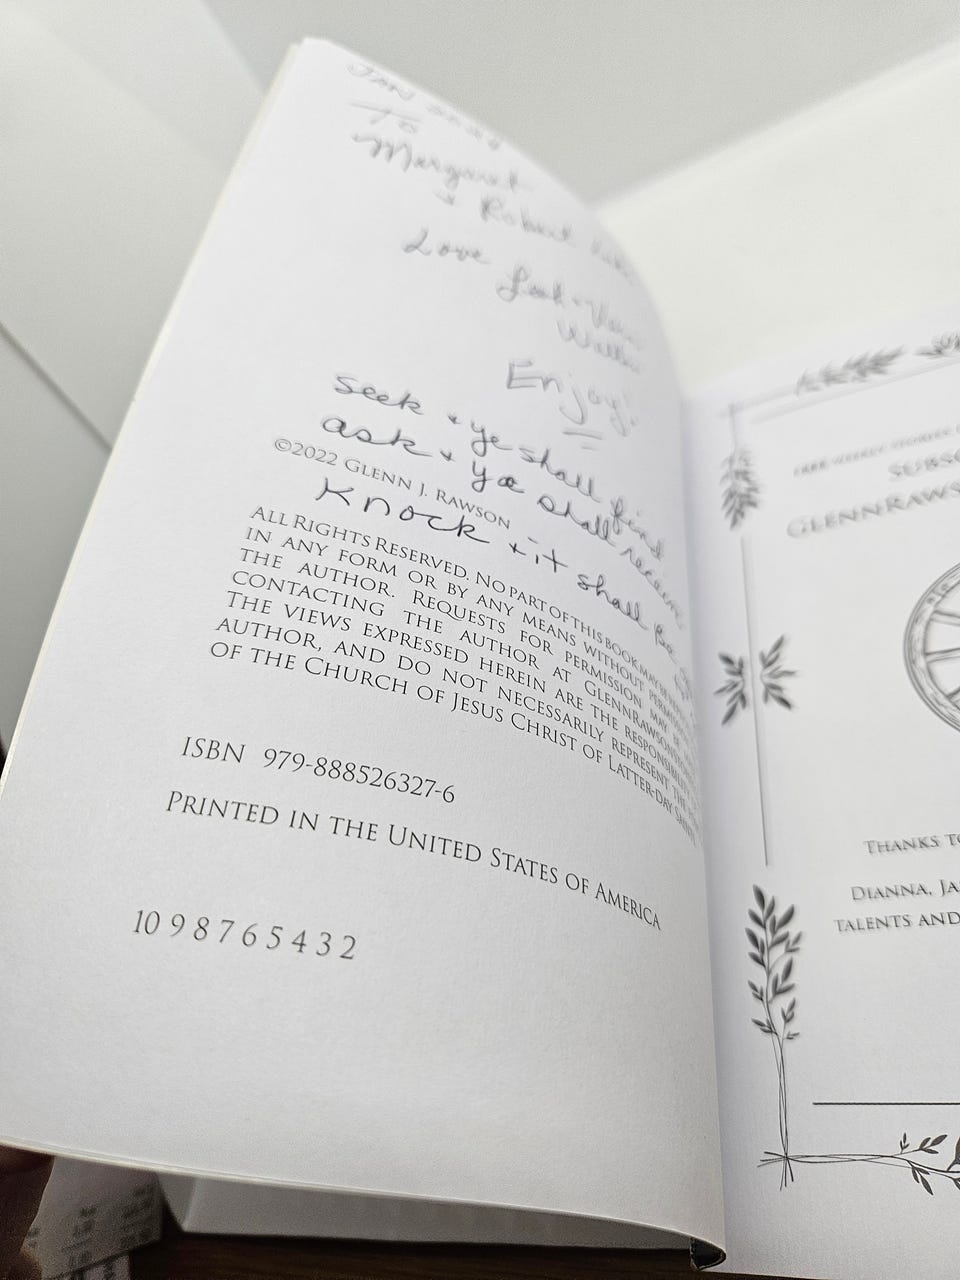 JAN
To
Margaret
+ Robert
Love
Walker
Enjoy!
seek + ye shall find
ask + ye shall receive
©2022 GLENN J. RAWSON
Knock + it shall be
ALL RIGHTS RESERVED. NO PART OF THIS BOOK MAY BE
IN ANY FORM OR BY ANY MEANS WITHOUT PERMISSION
THE AUTHOR. REQUESTS FOR PERMISSION MAY BE
CONTACTING THE AUTHOR AT
THE VIEWS EXPRESSED HEREIN ARE THE RESPONSIBILITY
AUTHOR, AND DO NOT NECESSARILY REPRESENT THE
OF THE CHURCH OF JESUS CHRIST OF LATTER-DAY SAINTS
ISBN 979-888526327-6
PRINTED IN THE UNITED STATES OF AMERICA
10 9 8 7 6 5 4 3 2
FREE WEEKLY STORIES
SUBSC
GLENNRAWS
THANKS TO
DIANNA, JA
TALENTS AND